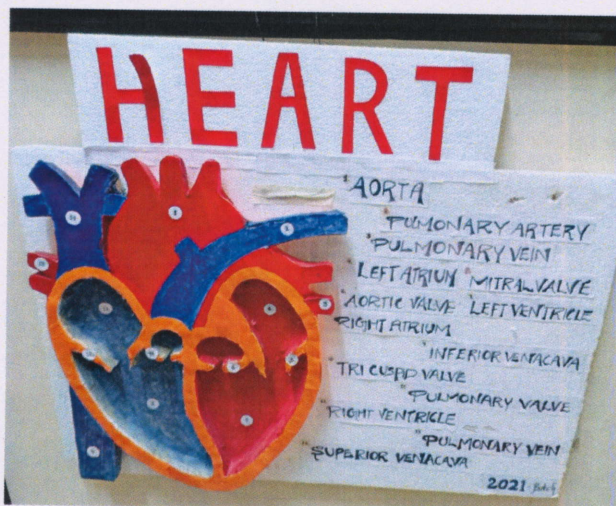 HEART
AORTA
PULMONARY ARTERY
PULMONARY VEIN
LEFT ATRIUM MITRAL VALVE
AORTIC VALVE LEFT VENTRICLE
RIGHT ATRIUM
INFERIOR VENACAVA
TRI CUSPID VALVE
PULMONARY VALVE
RIGHT VENTRICLE
PULMONARY VEIN
SUPERIOR VENACAVA
2021